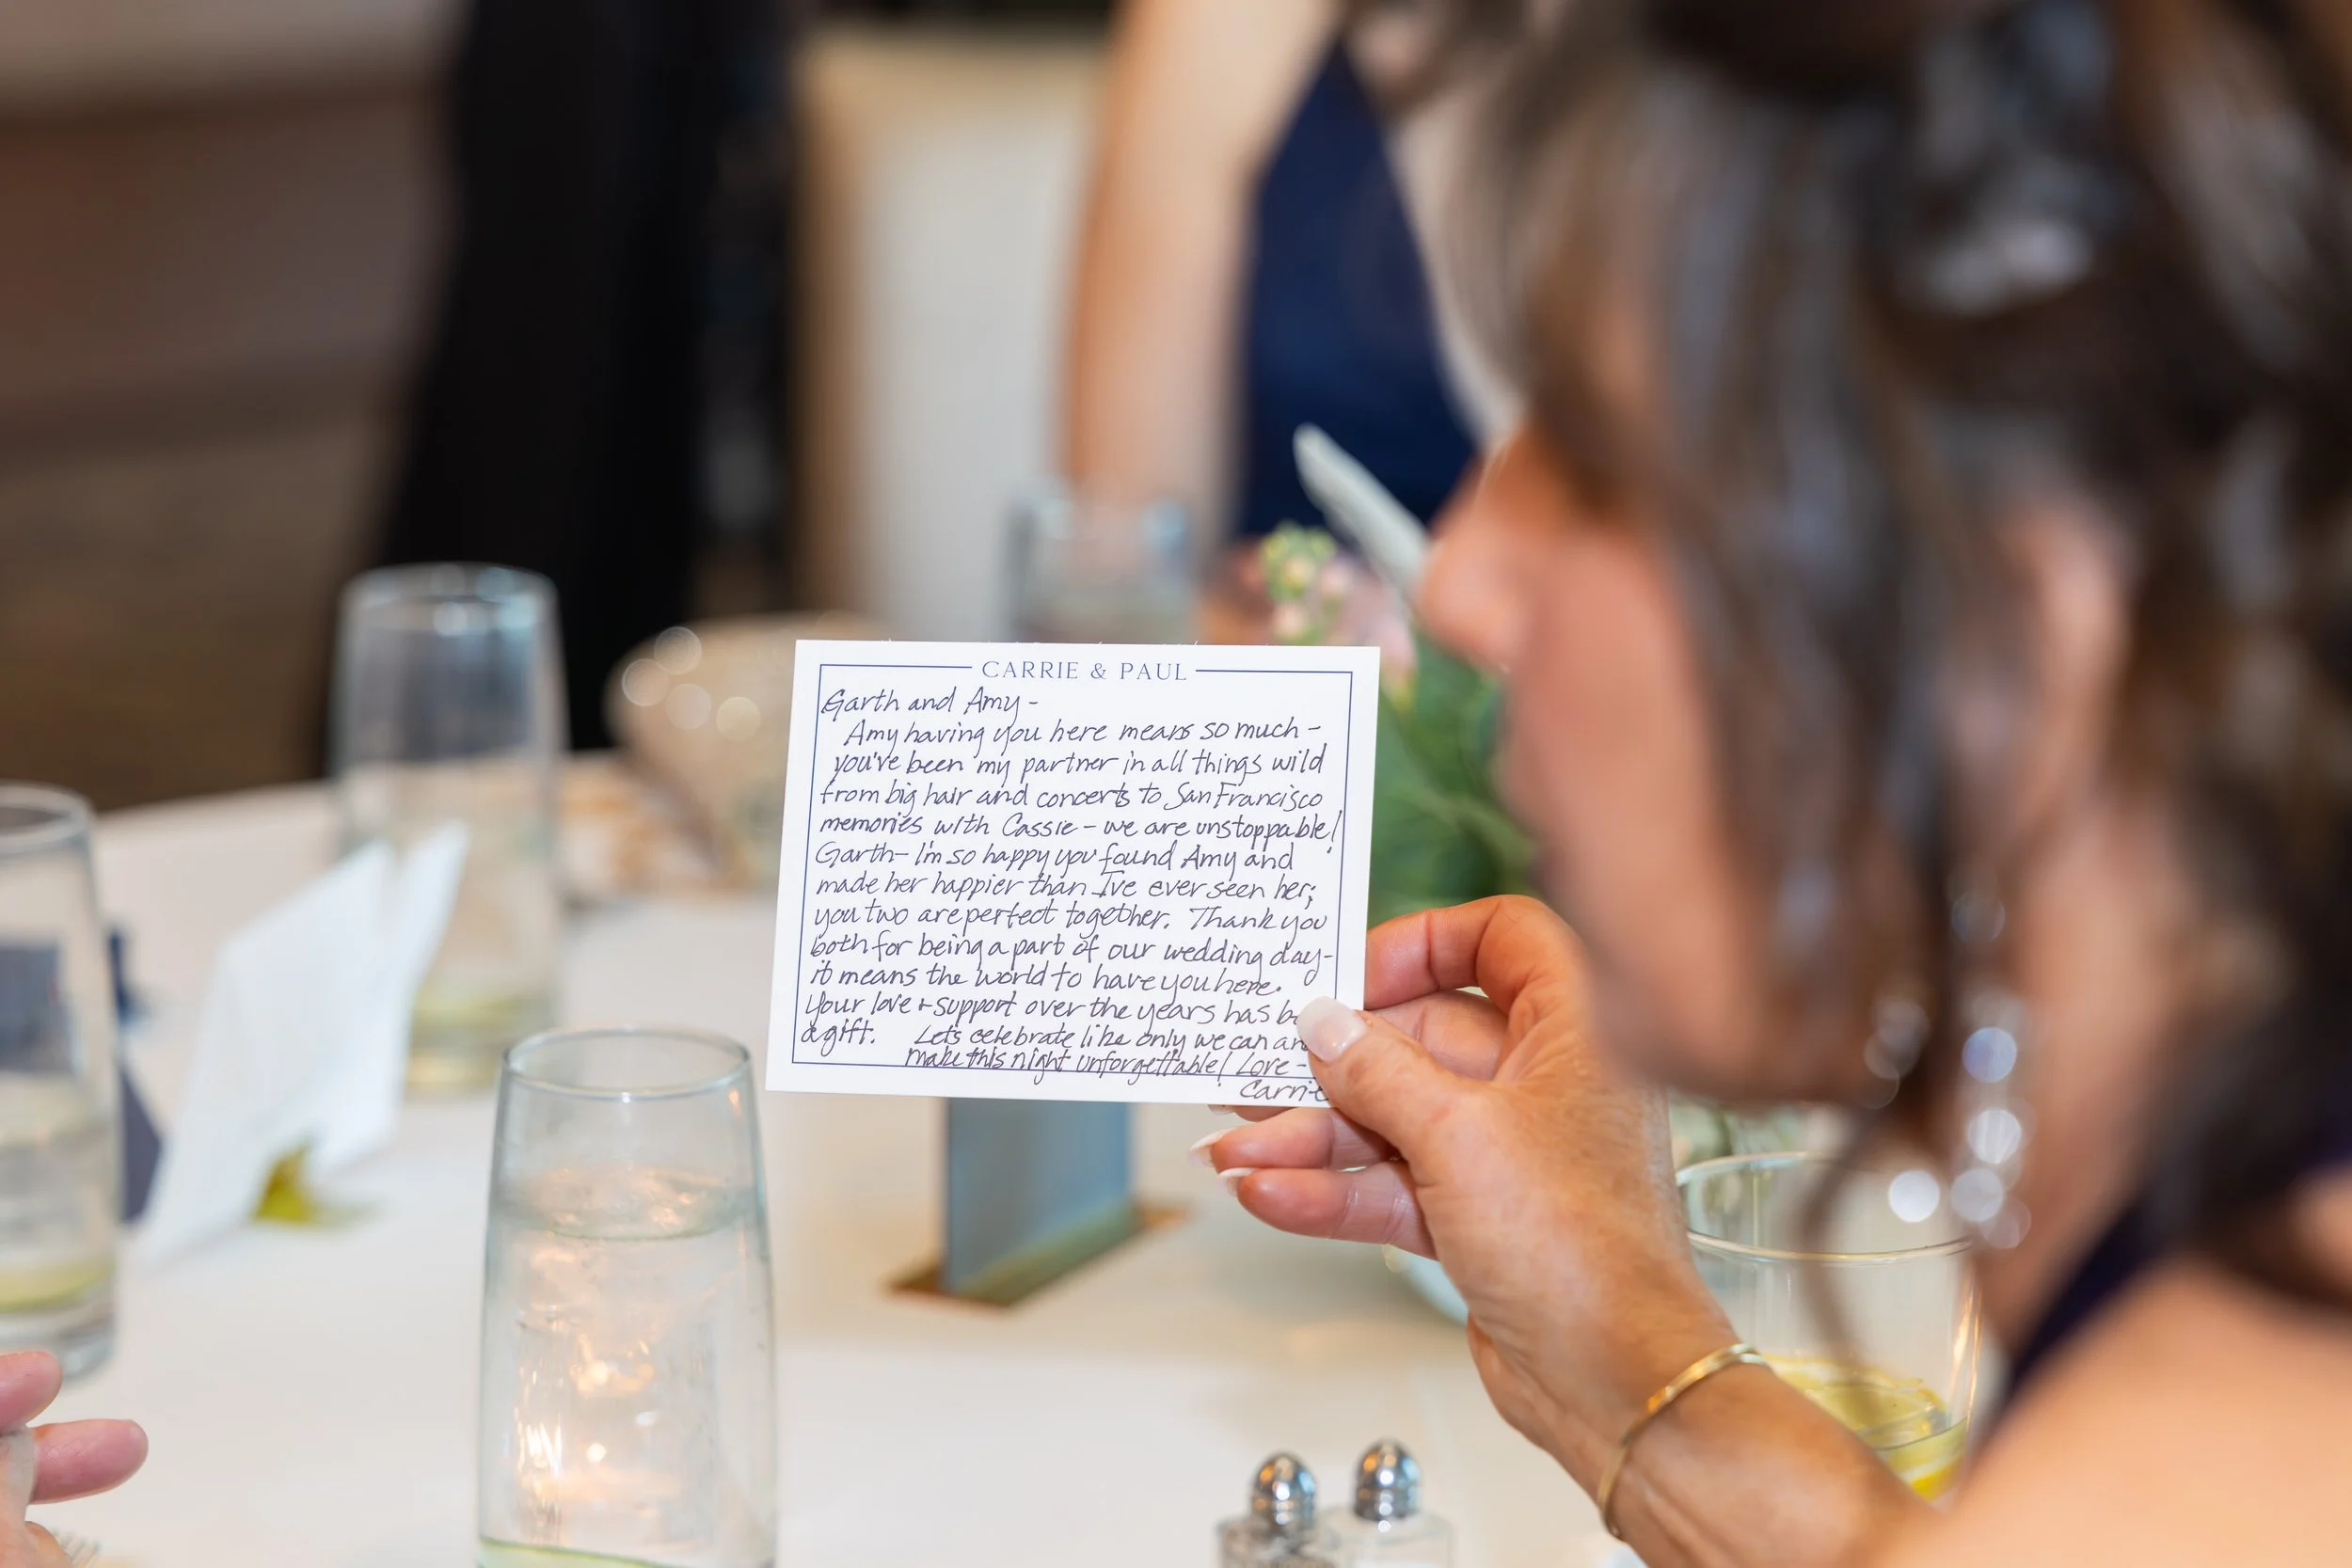 CARRIE & PAUL
Garth and Amy -
Amy having you here means so much -
you've been my partner in all things wild
from big hair and concerts to San Francisco
memories with Cassie - we are unstoppable!
Garth - I'm so happy you found Amy and
made her happier than I've ever seen her;
you two are perfect together. Thank you
both for being a part of our wedding day -
it means the world to have you here.
Your love + support over the years has be
a gift. Let's celebrate like only we can an
make this night unforgettable! Love -
Carrie